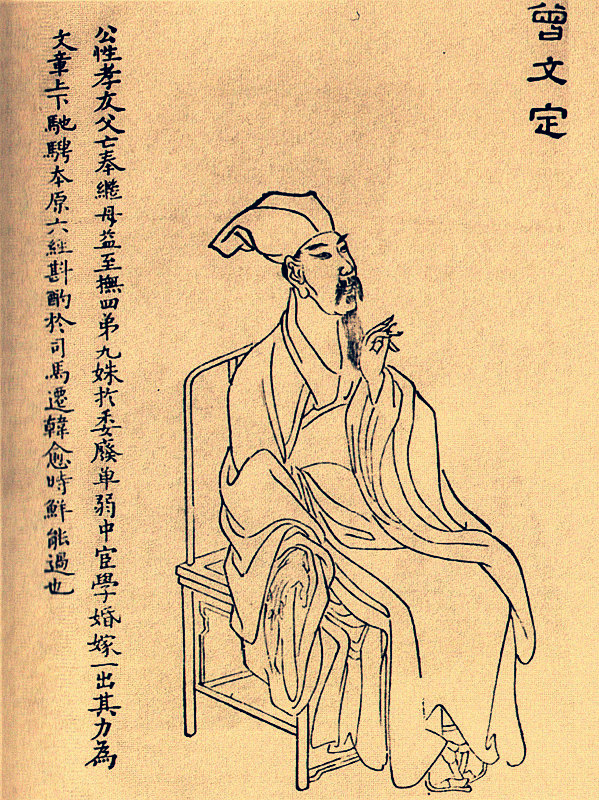 曾文定
公性孝友父亡奉繼母益至撫四弟九妹於委廢单弱中宦學婚嫁一出其力為
文章上下馳騁本原六經斟酌於司馬遷韓愈時鮮能過也